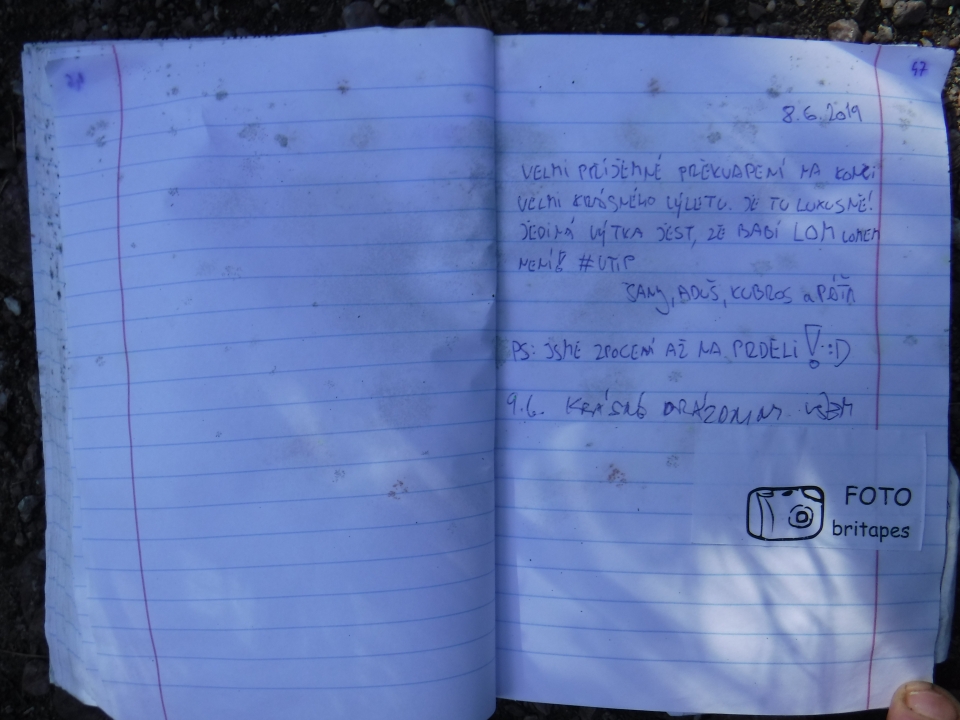 47
8.6.2019
VELMI PŘÍJEMNÉ PŘEKVAPENÍ NA KONCI
VELMI KRÁSNÉHO VÝLETU. JE TU LUXUSNĚ!
JEDINÁ VÝTKA JEST, ŽE BABÍ LOM LOMEM
NENÍ! #VTIP
JANY, ADUŠ, KUBROS a PÁŤA
PS: JSME ZPOCENÍ AŽ NA PRDELI! :D
9.6. KRÁSNÉ VŠEM
FOTO
britapes